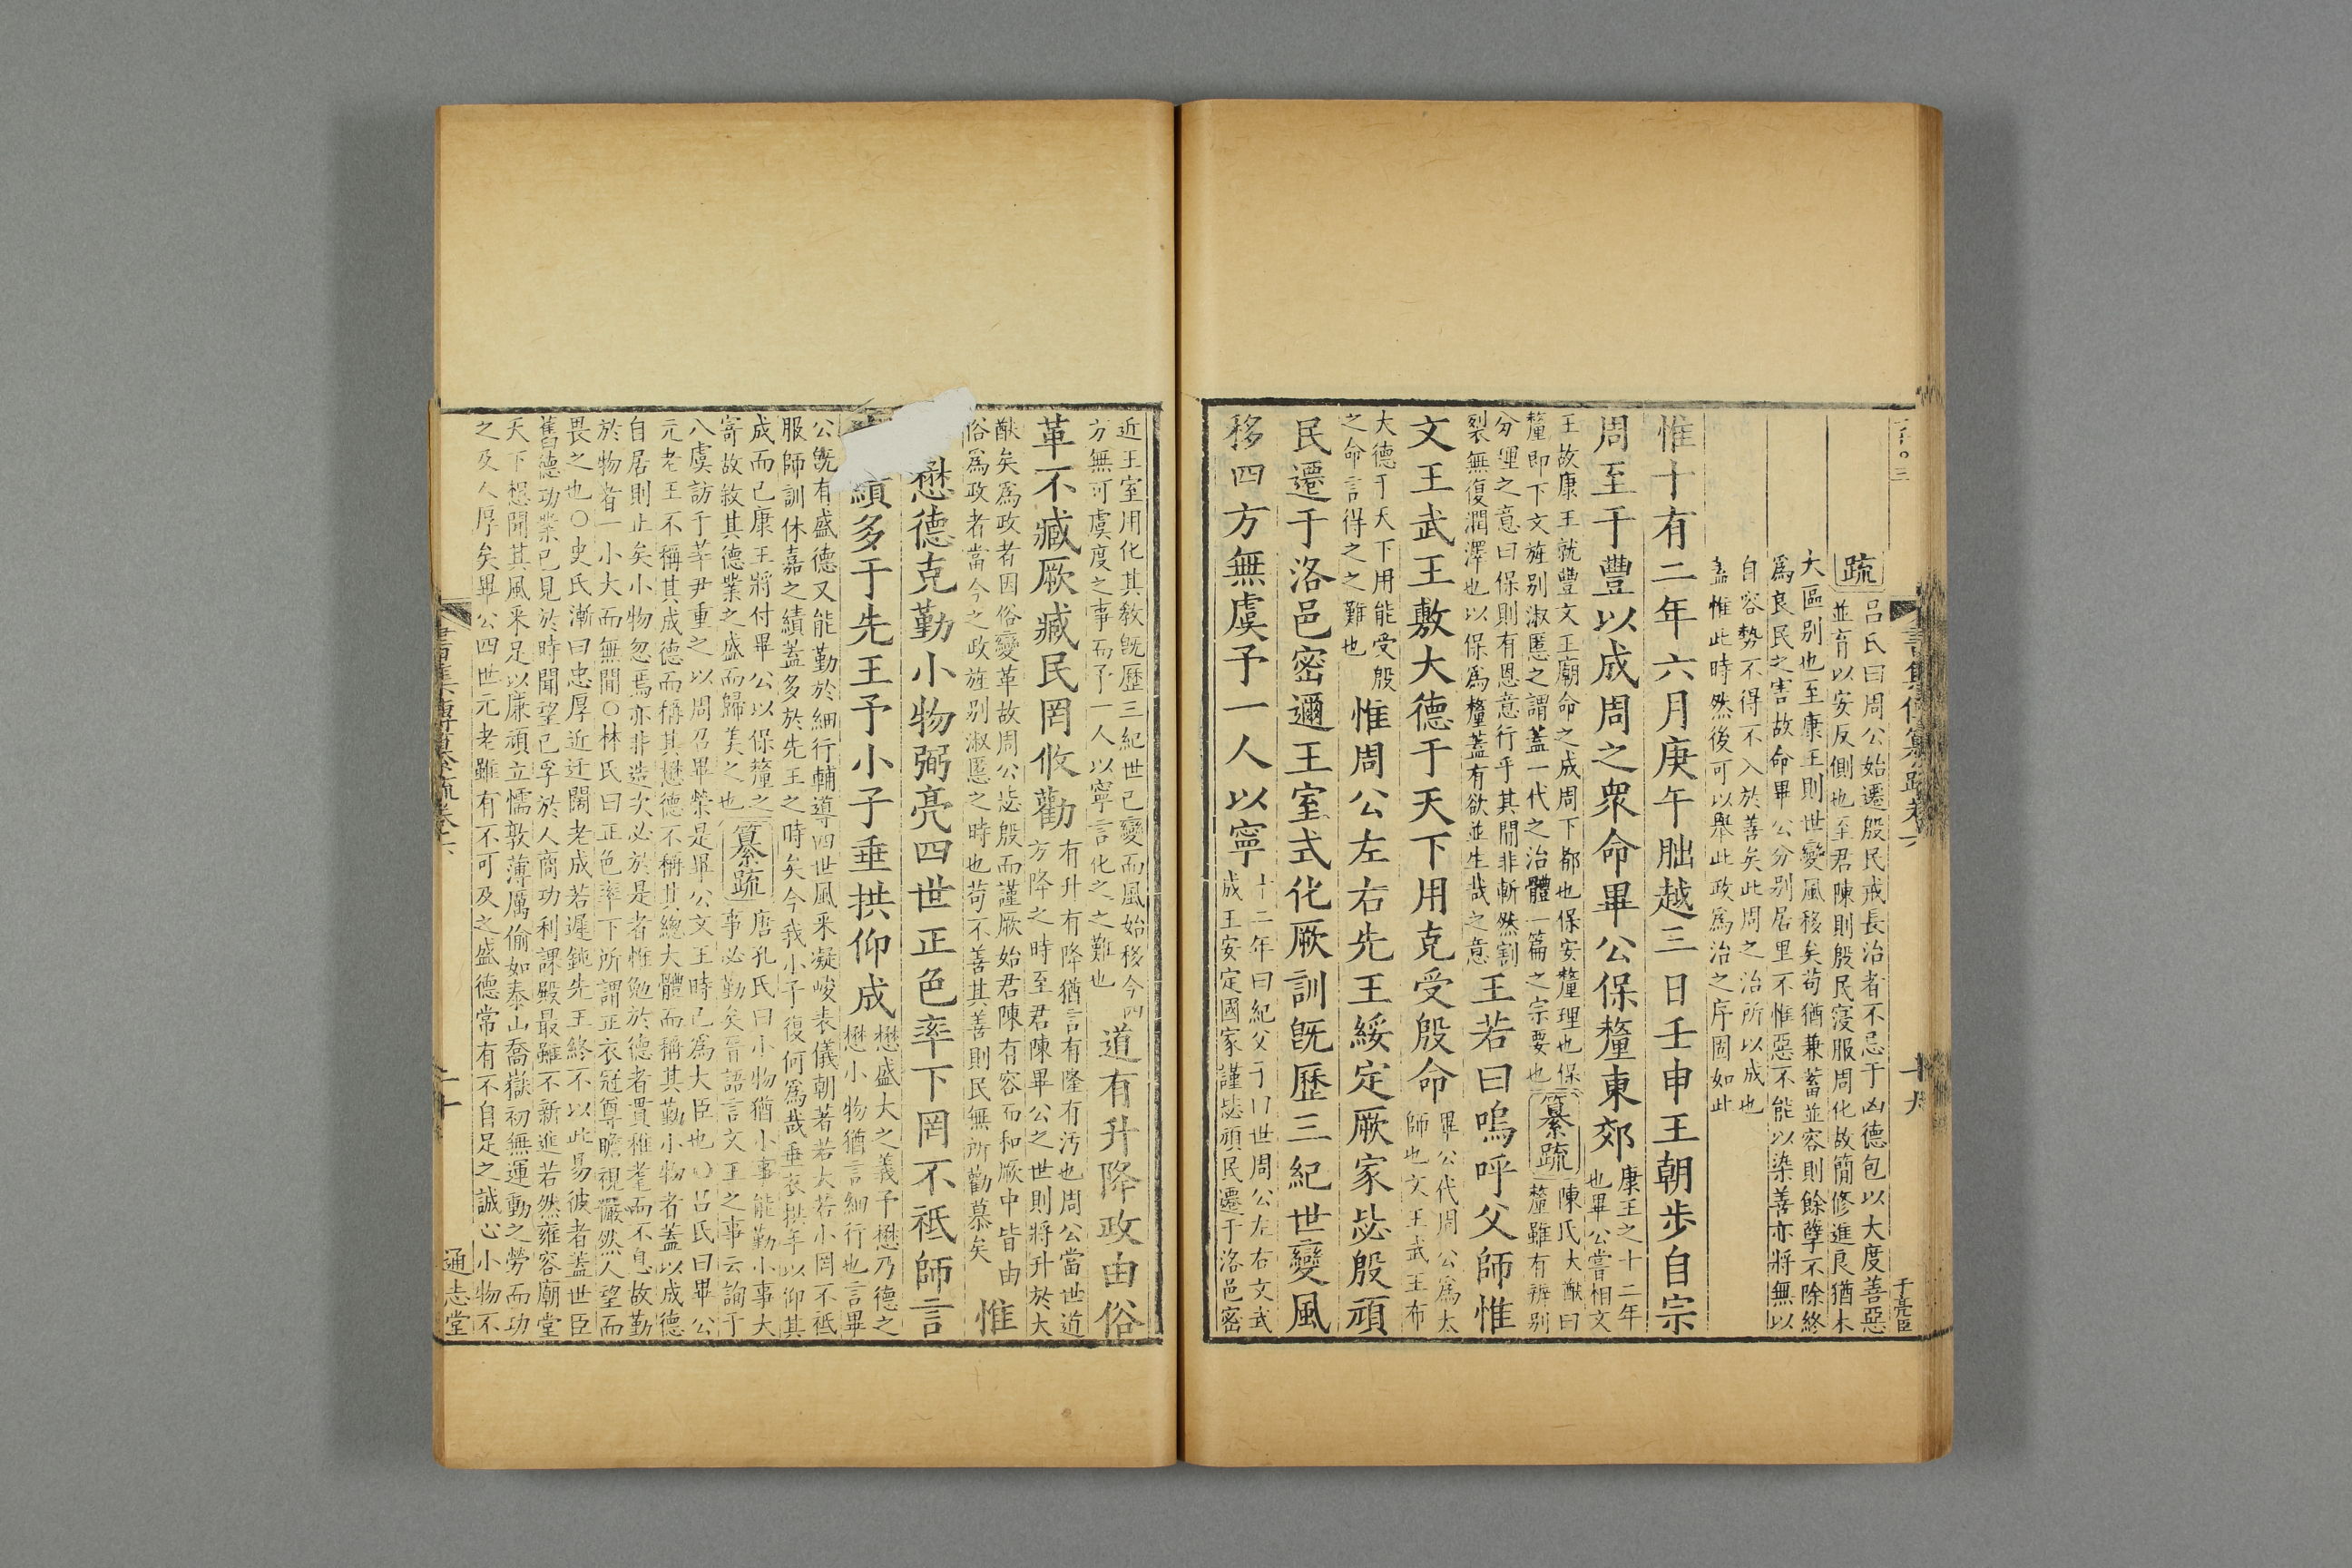 疏
呂氏曰周公始遷殷民戒長治者不忌于凶德包以大度善惡
並育以安反側也至君陳則殷民寖服周化故簡修進良猶未
大區别也至康王則世變風移矣苟猶兼蓄並容則餘孽不除終
爲良民之害故命畢公分别居里不惟惡不能以染善亦將無以
自容勢不得不入於善矣此周之治所以成也
蓋惟此時然後可以舉此政爲治之序固如此
惟十有二年六月庚午朏越三日壬申王朝步自宗
周至于豐以成周之衆命畢公保釐東郊
康王之十二年
也畢公嘗相文
王故康王就豐文王廟命之成周下都也保安釐理也保
釐即下文旌别淑慝之謂蓋一代之治體一篇之宗要也
纂疏
陳氏大猷曰
釐雖有辨别
分理之意曰保則有恩意行乎其間非斬然割
裂無復潤澤也以保爲釐蓋有欲並生哉之意
王若曰嗚呼父師惟
文王武王敷大德于天下用克受殷命
畢公代周公爲太
師也文王武王布
大德于天下用能受殷
之命言得之之難也
惟周公左右先王綏定厥家毖殷頑
民遷于洛邑密邇王室式化厥訓旣歷三紀世變風
移四方無虞予一人以寧
十二年曰紀父子曰世周公左右文武
成王安定國家謹毖頑民遷于洛邑密
書集傳纂疏卷六
十九
于亮臣
近王室用化其敎旣歷三紀世已變而風始移今四
方無可虞度之事而予一人以寧言化之之難也
道有升降政由俗
革不臧厥臧民罔攸勸
有升有降猶言有隆有汚也周公當世道
方降之時至君陳畢公之世則將升於大
猷矣爲政者因俗變革故周公毖殷而謹厥始君陳有容而和厥中皆由
俗爲政者當今之政旌别淑慝之時也苟不善其善則民無所勸慕矣
惟
懋德克勤小物弼亮四世正色率下罔不祗師言
績多于先王予小子垂拱仰成
懋盛大之義予懋乃德之
懋小物猶言細行也言畢
公旣有盛德又能勤於細行輔導四世風采凝峻表儀朝著若大若小罔不祗
服師訓休嘉之績蓋多於先王之時矣今我小子復何爲哉垂衣拱手以仰其
成而已康王將付畢公以保釐之
寄故敘其德業之盛而歸美之也
纂疏
唐孔氏曰小物猶小事能勤小事大
事必勤矣晉語言文王之事云詢于
八虞訪于莘尹重之以周召畢榮是畢公文王時已爲大臣也○呂氏曰畢公
元老王不稱其成德而稱其懋德不稱其總大體而稱其勤小物者蓋以成德
自居則止矣小物忽焉亦非造次必於是者惟勉於德者貫稚耄而不息故勤
於物者一小大而無間○林氏曰正色率下所謂正衣冠尊瞻視儼然人望而
畏之也○史氏漸曰忠厚近迂闊老成若遲鈍先王終不以此易彼者蓋世臣
舊德功業已見於時聞望已孚於人商功利課殿最雖不新進若然雍容廟堂
天下想聞其風采足以廉頑立懦敦薄厲偷如泰山喬嶽初無運動之勞而功
之及人厚矣畢公四世元老雖有不可及之盛德常有不自足之誠心小物不
通志堂